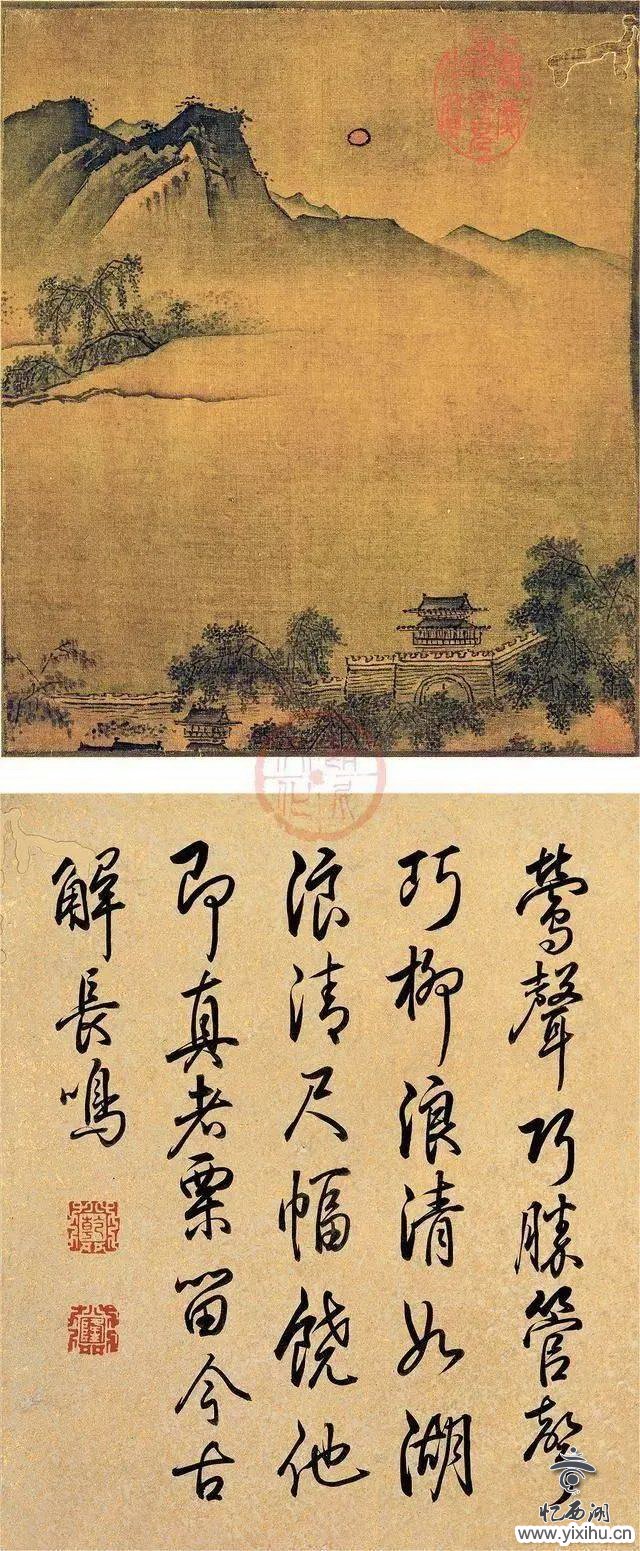 鶯聲巧勝管聲
巧柳浪清如湖
浪清尺幅饒他
即真者栗留今古
解長鳴
乾
隆
忆西湖
www.yixihu.cn